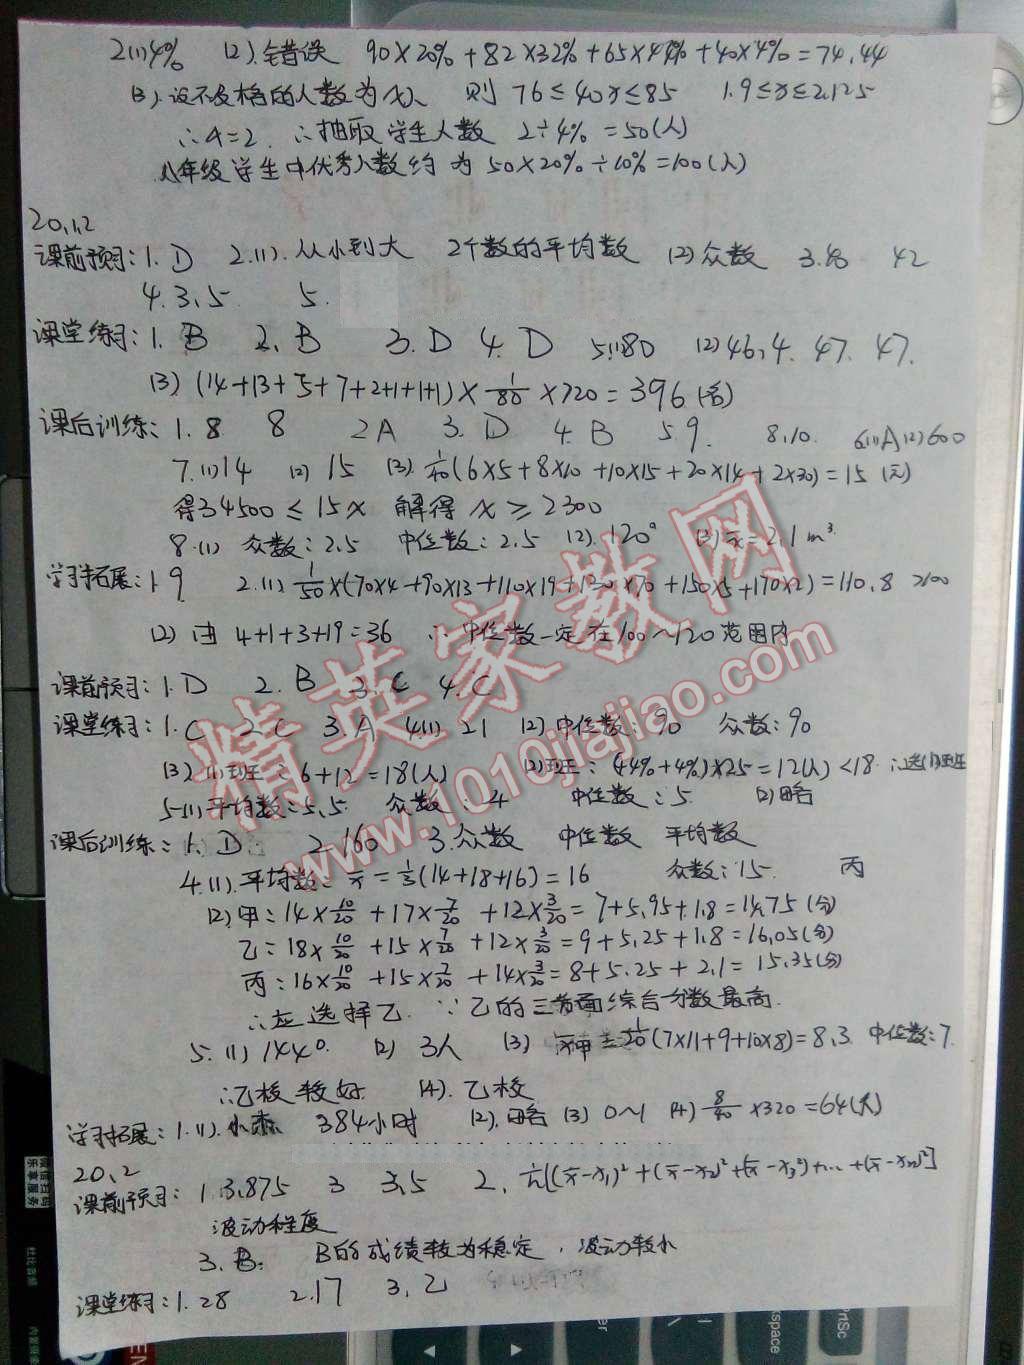 2.(1)4% (2).错误 90×20%+82×32%+65×44%+40×4%=74.44
(3).设不及格的人数为x人 则 76≤40x≤85 1.9≤x≤2.125
∴x=2 ∴抽取学生人数 2÷4%=50(人)
八年级学生中优秀人数约为50×20%÷10%=100(人)
20.1.2
课前预习:1.D 2.(1).从小到大 2个数的平均数 (2)众数 3. 42
4.3、5 5.
课堂练习:1.B 2.B 3.D 4.D 5.(1)80 (2)46,4. 47. 47.
(3)(14+13+5+7+2+1+1+1)×1/80×720=396(名)
课后训练:1.8 8 2A 3.D 4.B 5.9. 8,10. 6.(1)A(2)600
7.(1)14 (2)15 (3).1/40(6×5+8×10+10×15+20×14+2×30)=15(元)
得34500≤15x 解得x≥2300
8.(1)众数:2.5 中位数:2.5 (2).120° (3)x̄=2.1m³
学习拓展:1.9 2.(1)1/50×(70×4+90×13+110×19+130×70+150×5+170×2)=110.8
(2)由4+1+3+19=36 ∴中位数一定在100~120范围内
课前预习:1.D 2.B 3.C 4.C
课堂练习:1.C 2.C 3.A 4.(1).21 (2)中位数:90 众数:90
(3)(1)班:6+12=18(人) (2)班:(44%+4%)×25=12(人)<18 ∴选(1)班
5.(1)平均数:5.5. 众数:4 中位数:5 (2)略
课后训练:1.D 2.160 3.众数 中位数 平均数
4.(1).平均数:x̄=1/3(14+18+16)=16 众数:15. 丙
(2).甲:14×10/20+17×7/20+12×3/20=7+5.95+1.8=14.75(分)
乙:18×10/20+15×7/20+12×3/20=9+5.25+1.8=16.05(分)
丙:16×10/20+15×7/20+14×3/20=8+5.25+2.1=15.35(分)
∴应选择乙 ∵乙的三方面综合分数最高.
5.(1)144°. (2)3人 (3) 1/20(7×11+9+10×8)=8.3 中位数:7.
∴乙校较好 (4).乙校
学习拓展:1.(1).小 384小时 (2).略 (3)0~1 (4)8/40×320=64(人)
20.2
课前预习:1.3.875 3 3.5 2.1/n[(x̄-x₁)²+(x̄-x₂)²+(x̄-x₃)²+...+(x̄-xn)²]
波动程度
3.B. B的成绩较为稳定,波动较小
课堂练习:1.28 2.17 3.乙
精英家教网
www.1010jiajiao.com
PrtSc